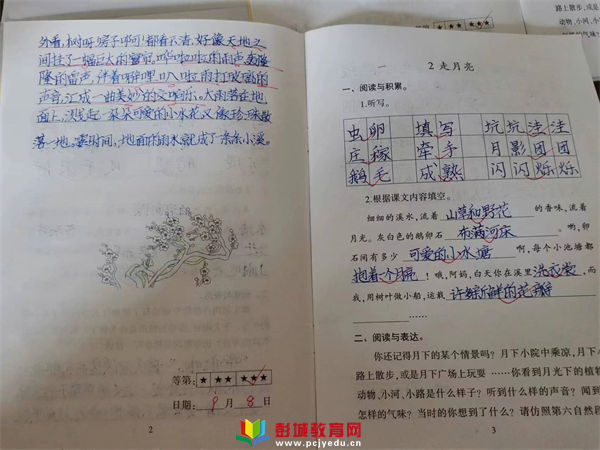 外看,树呀!房子啊!都看不清,好像天地之
间挂了一幅巨大的窗帘,哗啦啦的雨声,轰隆
隆的雷声,伴着噼哩叭啦雨打玻璃的
声音,汇成一曲美妙的交响乐。大雨落在地
面上,溅起一朵朵可爱的小水花又像珍珠散
落一地。霎时间,地面的雨水就成了条条小溪。
等第:★ ★★ ★★★
日期: 9 月 8 日
2
路上散步,或是
动物、小河、小
怎样的气味?
★ ★★ ★★★
2 走月亮
一、阅读与积累。
1.听写。
虫卵 填写 坑坑洼洼
庄稼 牵手 月影团团
鹅毛 成熟 闪闪烁烁
2.根据课文内容填空。
细细的溪水,流着 山草和野花 的香味,流着
月光。灰白色的鹅卵石 布满河床 。哟,卵
石间有多少 可爱的小水塘 啊,每个小池塘都
抱着个月亮 !哦,阿妈,白天你在溪里 洗衣裳 ,而
我,用树叶做小船,运载 许多新鲜的花瓣
……
二、阅读与表达。
你还记得月下的某个情景吗?月下小院中乘凉,月下
路上散步,或是月下广场上玩耍……你看到月光下的植物
动物、小河、小路是什么样子?听到什么样的声音?闻到
怎样的气味?当时的你想到了什么?请仿照第六自然段
3
彭城教育网
www.pcjyedu.cn